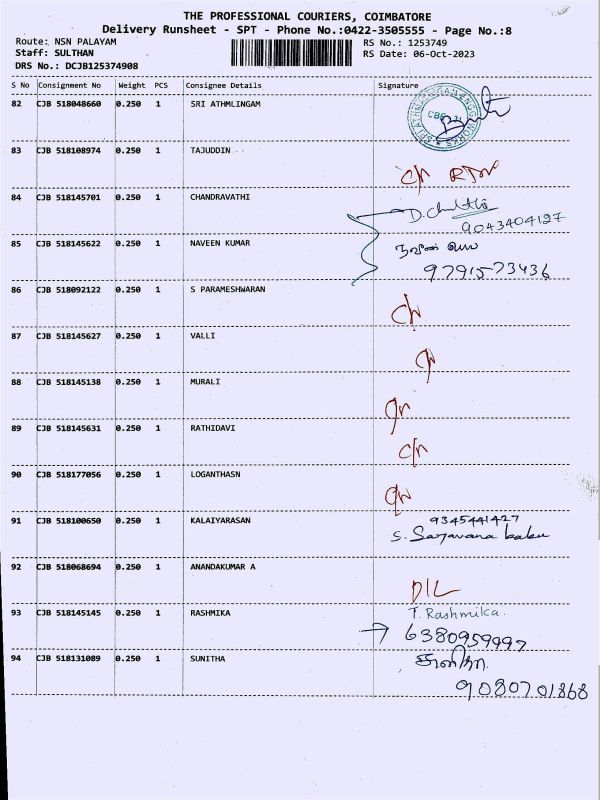 THE PROFESSIONAL COURIERS, COIMBATORE
Delivery Runsheet - SPT - Phone No.:0422-3505555 - Page No.:8
Route: NSN PALAYAM RS No.: 1253749
Staff: SULTHAN RS Date: 06-Oct-2023
DRS No.: DCJB125374908
S No Consignment No Weight PCS Consignee Details Signature
82 CJB 518048660 0.250 1 SRI ATHMLINGAM
83 CJB 518108974 0.250 1 TAJUDDIN
84 CJB 518145701 0.250 1 CHANDRAVATHI
9043404127
85 CJB 518145622 0.250 1 NAVEEN KUMAR
9791573436
86 CJB 518092122 0.250 1 S PARAMESHWARAN
87 CJB 518145627 0.250 1 VALLI
88 CJB 518145138 0.250 1 MURALI
89 CJB 518145631 0.250 1 RATHIDAVI
90 CJB 518177056 0.250 1 LOGANTHASN
91 CJB 518100650 0.250 1 KALAIYARASAN 9345441427
S. Saravana babu
92 CJB 518068694 0.250 1 ANANDAKUMAR A
D/L
93 CJB 518145145 0.250 1 RASHMIKA T. Rashmika.
6380959997
94 CJB 518131089 0.250 1 SUNITHA
9080701868